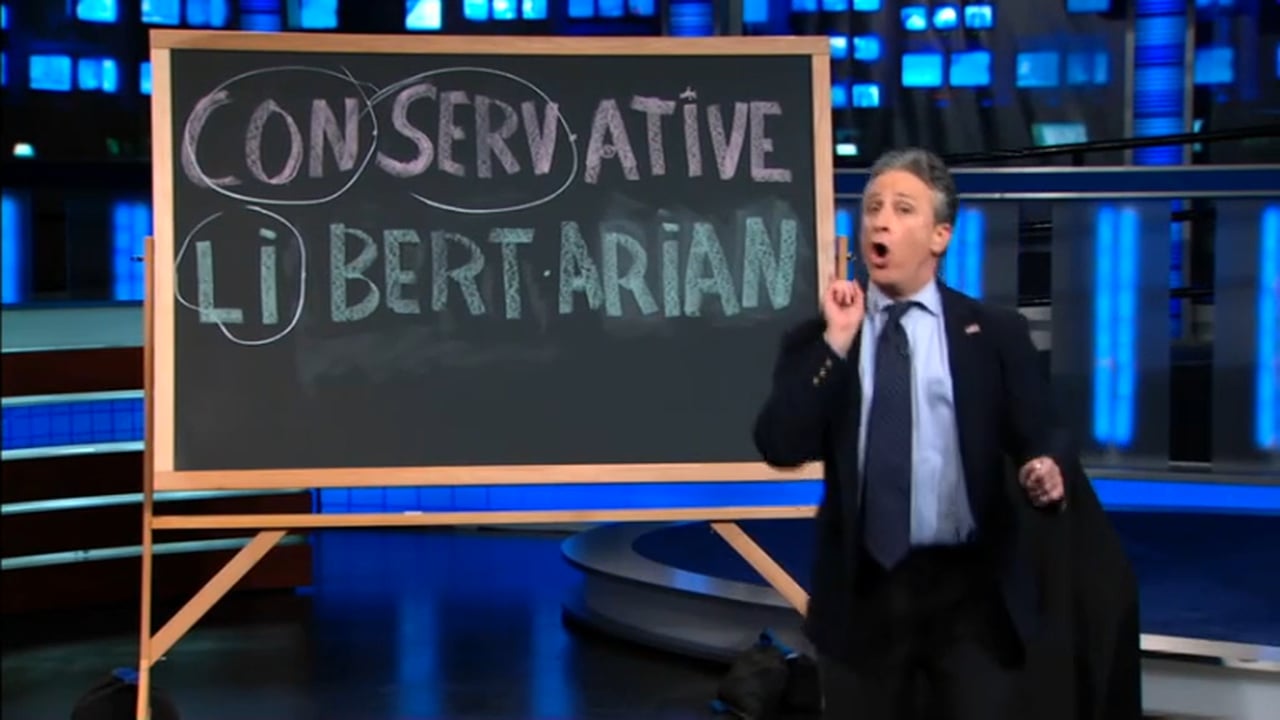 CONSERVATiVE
Li BERT ARiAN